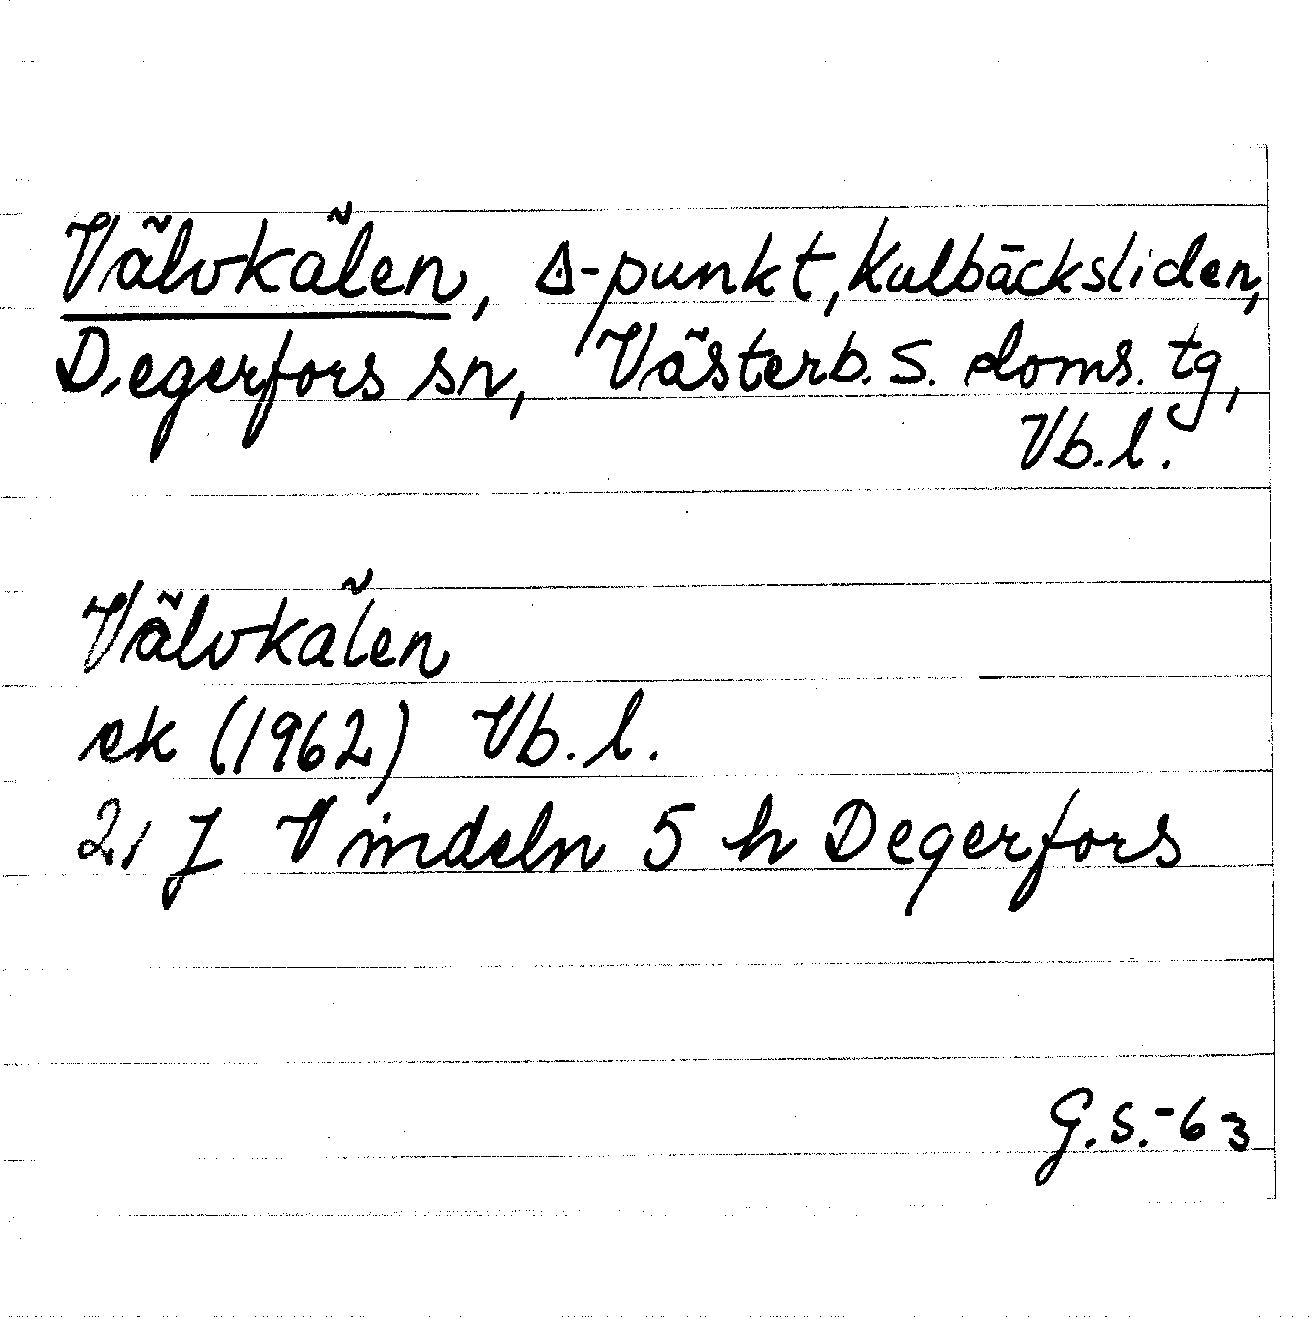 Välvkälen, Δ-punkt, Kulbäcksliden,
Degerfors sn, Västerb. S. doms. tg,
Vb. l.
Välvkälen
ek (1962) Vb. l.
21 J Vindeln 5 h Degerfors
G. S. -63